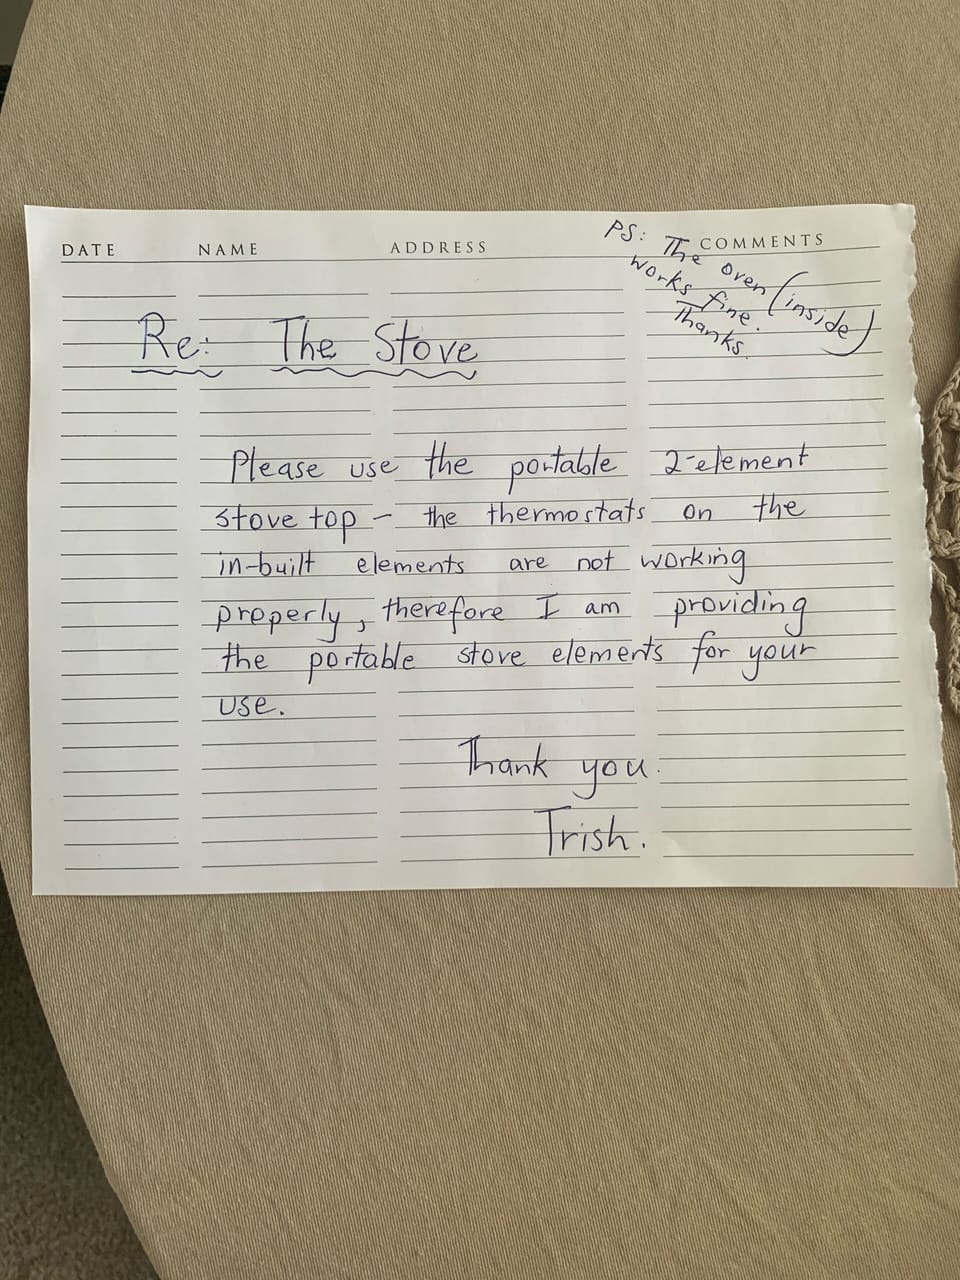 DATE NAME ADDRESS COMMENTS
PS: The oven (inside)
works fine.
Thanks.
Re: The Stove
Please use the portable 2-element
stove top - the thermostats on the
in-built elements are not working
properly, therefore I am providing
the portable stove elements for your
use.
Thank you.
Trish.